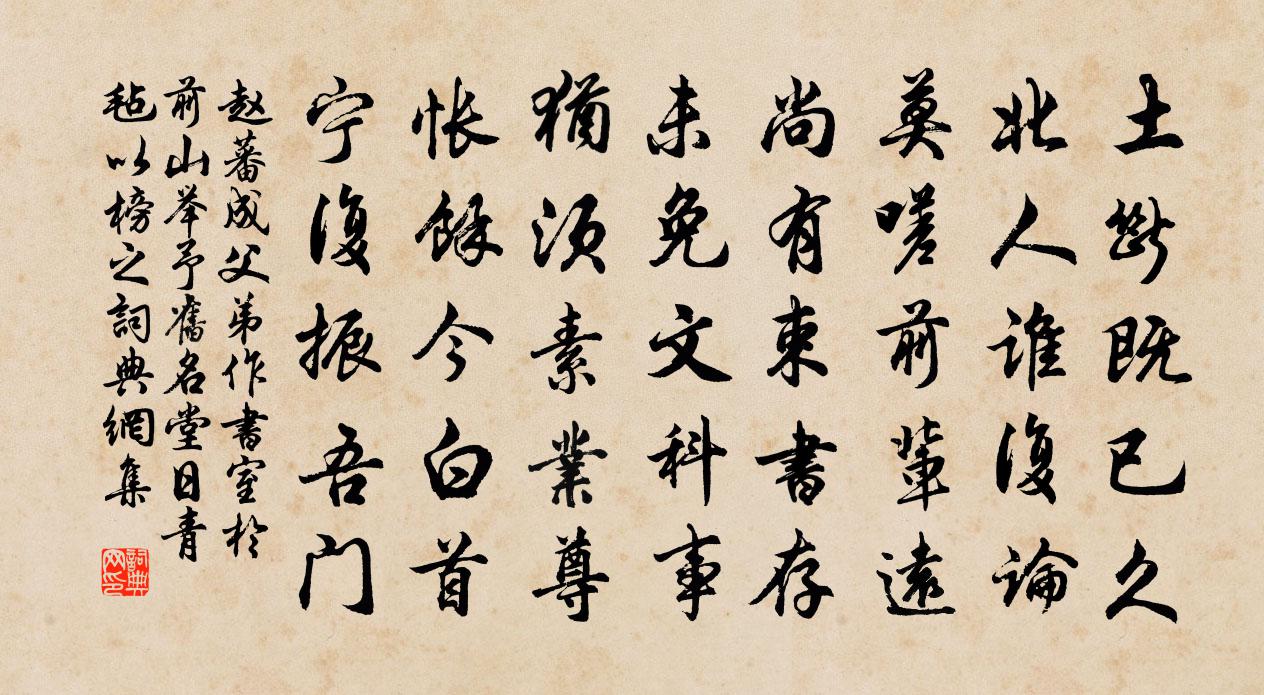 土断既已久
北人谁復論
莫嗟前輩遠
尚有束書存
未免文科事
猶须素業尊
怅餘今白首
宁復振吾門
赵蕃成父弟作書室於
前山举予舊名堂曰青
毡以榜之詞典網集
詞典网印